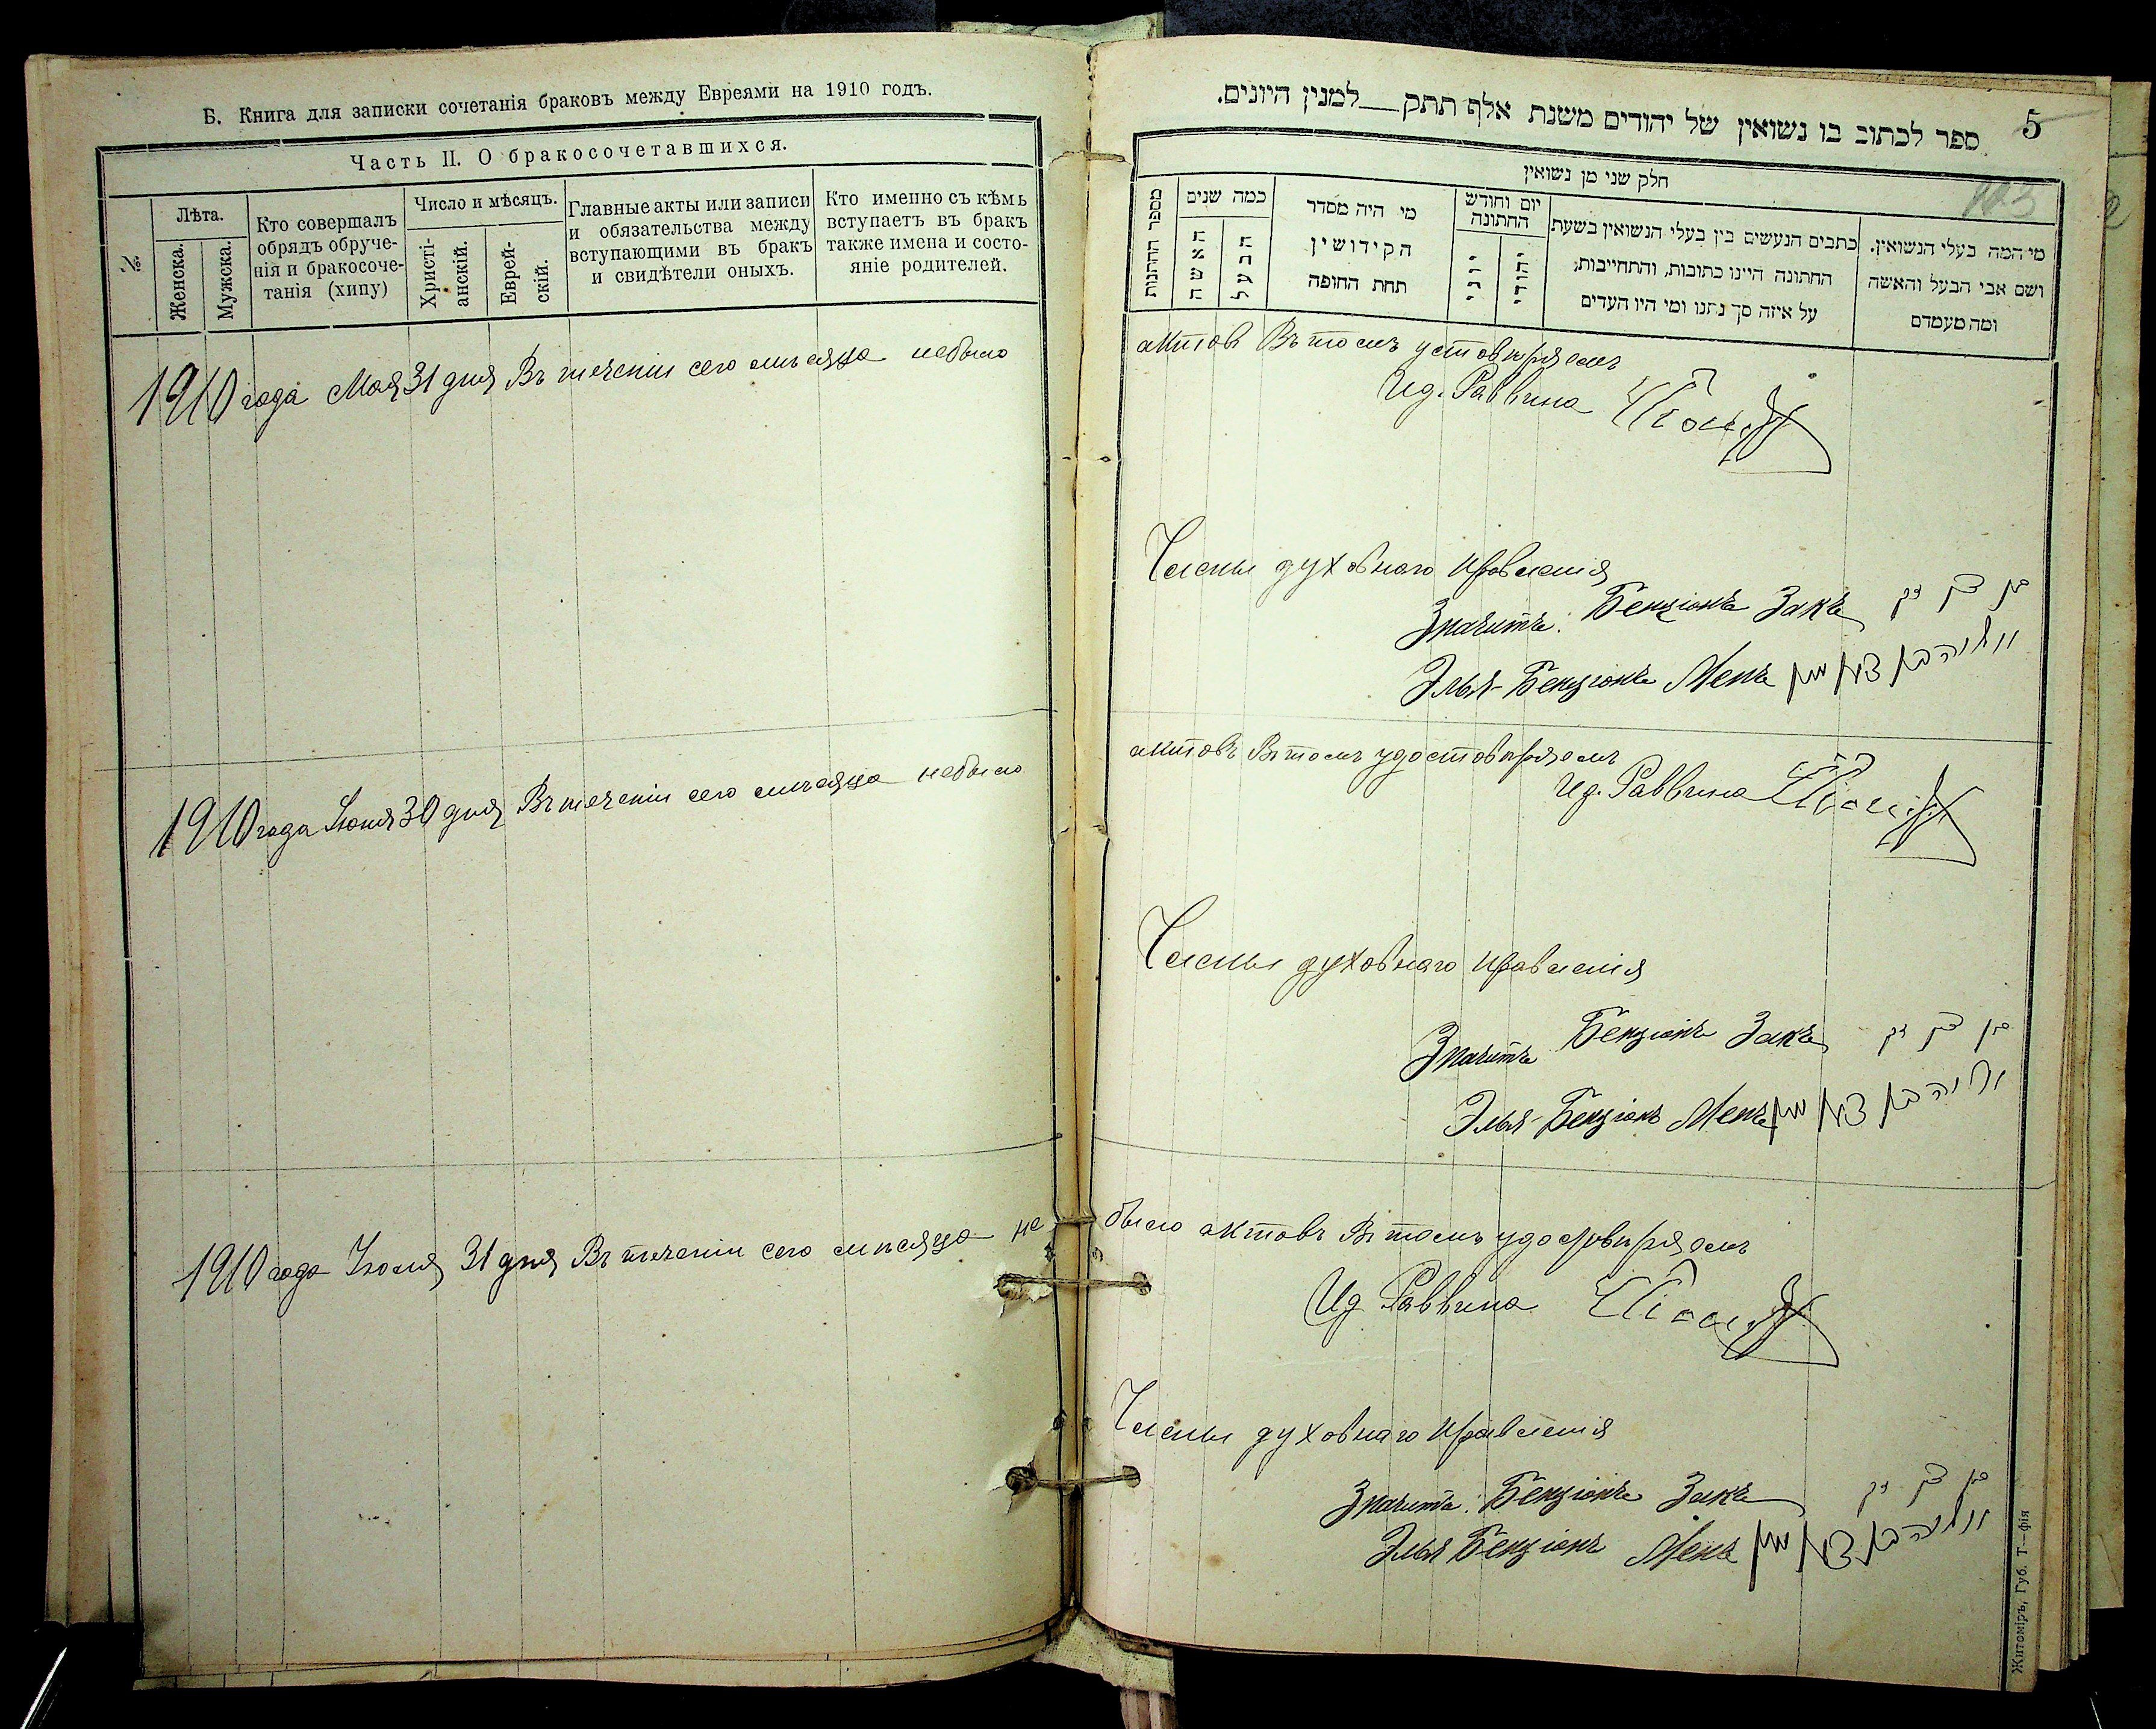 Б. Книга для записки сочетанія браковъ между Евреями на 1910 годъ.
Часть II. О бракосочетавшихся.
№
Лѣта.
Женска.
Мужска.
Кто совершалъ
обрядъ обруче-
нія и бракосоче-
танія (хипу)
Число и мѣсяцъ.
Христі-
анскій.
Еврей-
скій.
Главные акты или записи
и обязательства между
вступающими въ бракъ
и свидѣтели оныхъ.
Кто именно съ кѣмъ
вступаетъ въ бракъ
также имена и состо-
яніе родителей.
1910 года Мая 31 дня Въ теченіи сего мѣсяца небыло
1910 года Іюня 30 дня Въ теченіи сего мѣсяца небыло
1910 года Іюля 31 дня Въ теченіи сего мѣсяца не
5
ספר לכתוב בו נשואין של יהודים משנת אלף תתק למנין היונים.
חלק שני מן נשואין
123
מספר החתונות
כמה שנים
האשה
הבעל
מי היה מסדר
הקידושין
תחת החופה
יום וחודש
החתונה
יוני
יהודי
כתבים הנעשים בין בעלי הנשואין בשעת
החתונה היינו כתובות, והתחייבות;
על איזה סך נתנו ומי היו העדים
מי המה בעלי הנשואין.
ושם אבי הבעל והאשה
ומה מעמדם
актовъ Въ томъ устовѣряемъ
Ид. Раввина
Члены духовнаго правленія
Значитъ: Бенціонъ Закъ בן ציון זק
Элья-Бенціонъ Менъ
актовъ Въ томъ удостовѣряемъ
Ид. Раввина
Члены духовнаго правленія
Значитъ Бенціонъ Закъ בן ציון זק
Элья-Бенціонъ Менъ
было актовъ Въ томъ удостовѣряемъ
Ид Раввина
Члены духовнаго правленія
Значитъ: Бенціонъ Закъ בן ציון זק
Элья Бенціонъ Менъ
Житоміръ, Губ. Т—фія